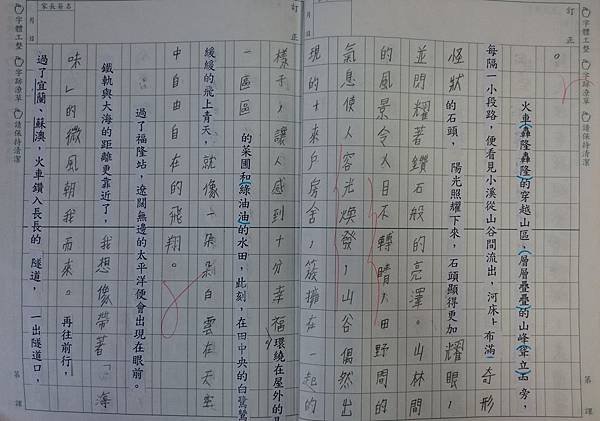 家長簽名
訂正
月 日
字體工整
字跡潦草
請保持清潔
第 課
。
火車轟隆轟隆的穿越山區，層層疊疊的山峰聳立兩旁，
每隔一小段路，便看見小溪從山谷間流出，河床上布滿奇形
怪狀的石頭，陽光照耀下來，石頭顯得更加耀眼，
並閃耀著鑽石般的亮澤。山林間
的風景令人目不轉睛，田野間的
氣息使人容光煥發，山谷偶然出
現的十來戶房舍，簇擁在一起的
樣子，讓人感到十分幸福，環繞在屋外的
一區區的菜圃和綠油油的水田，此刻，在田中央的白鷺鷥
緩緩的飛上青天，就像一朵朵白雲在天空
中自由自在的飛翔。
過了福隆站，遼闊無邊的太平洋便會出現在眼前。
鐵軌與大海的距離更靠近了，我想像帶著「海
味」的微風朝我而來。再往前行，
過了宜蘭、蘇澳，火車鑽入長長的隧道，一出隧道口，
訂正
月 日
字體工整
字跡潦草
請保持清潔
第 課